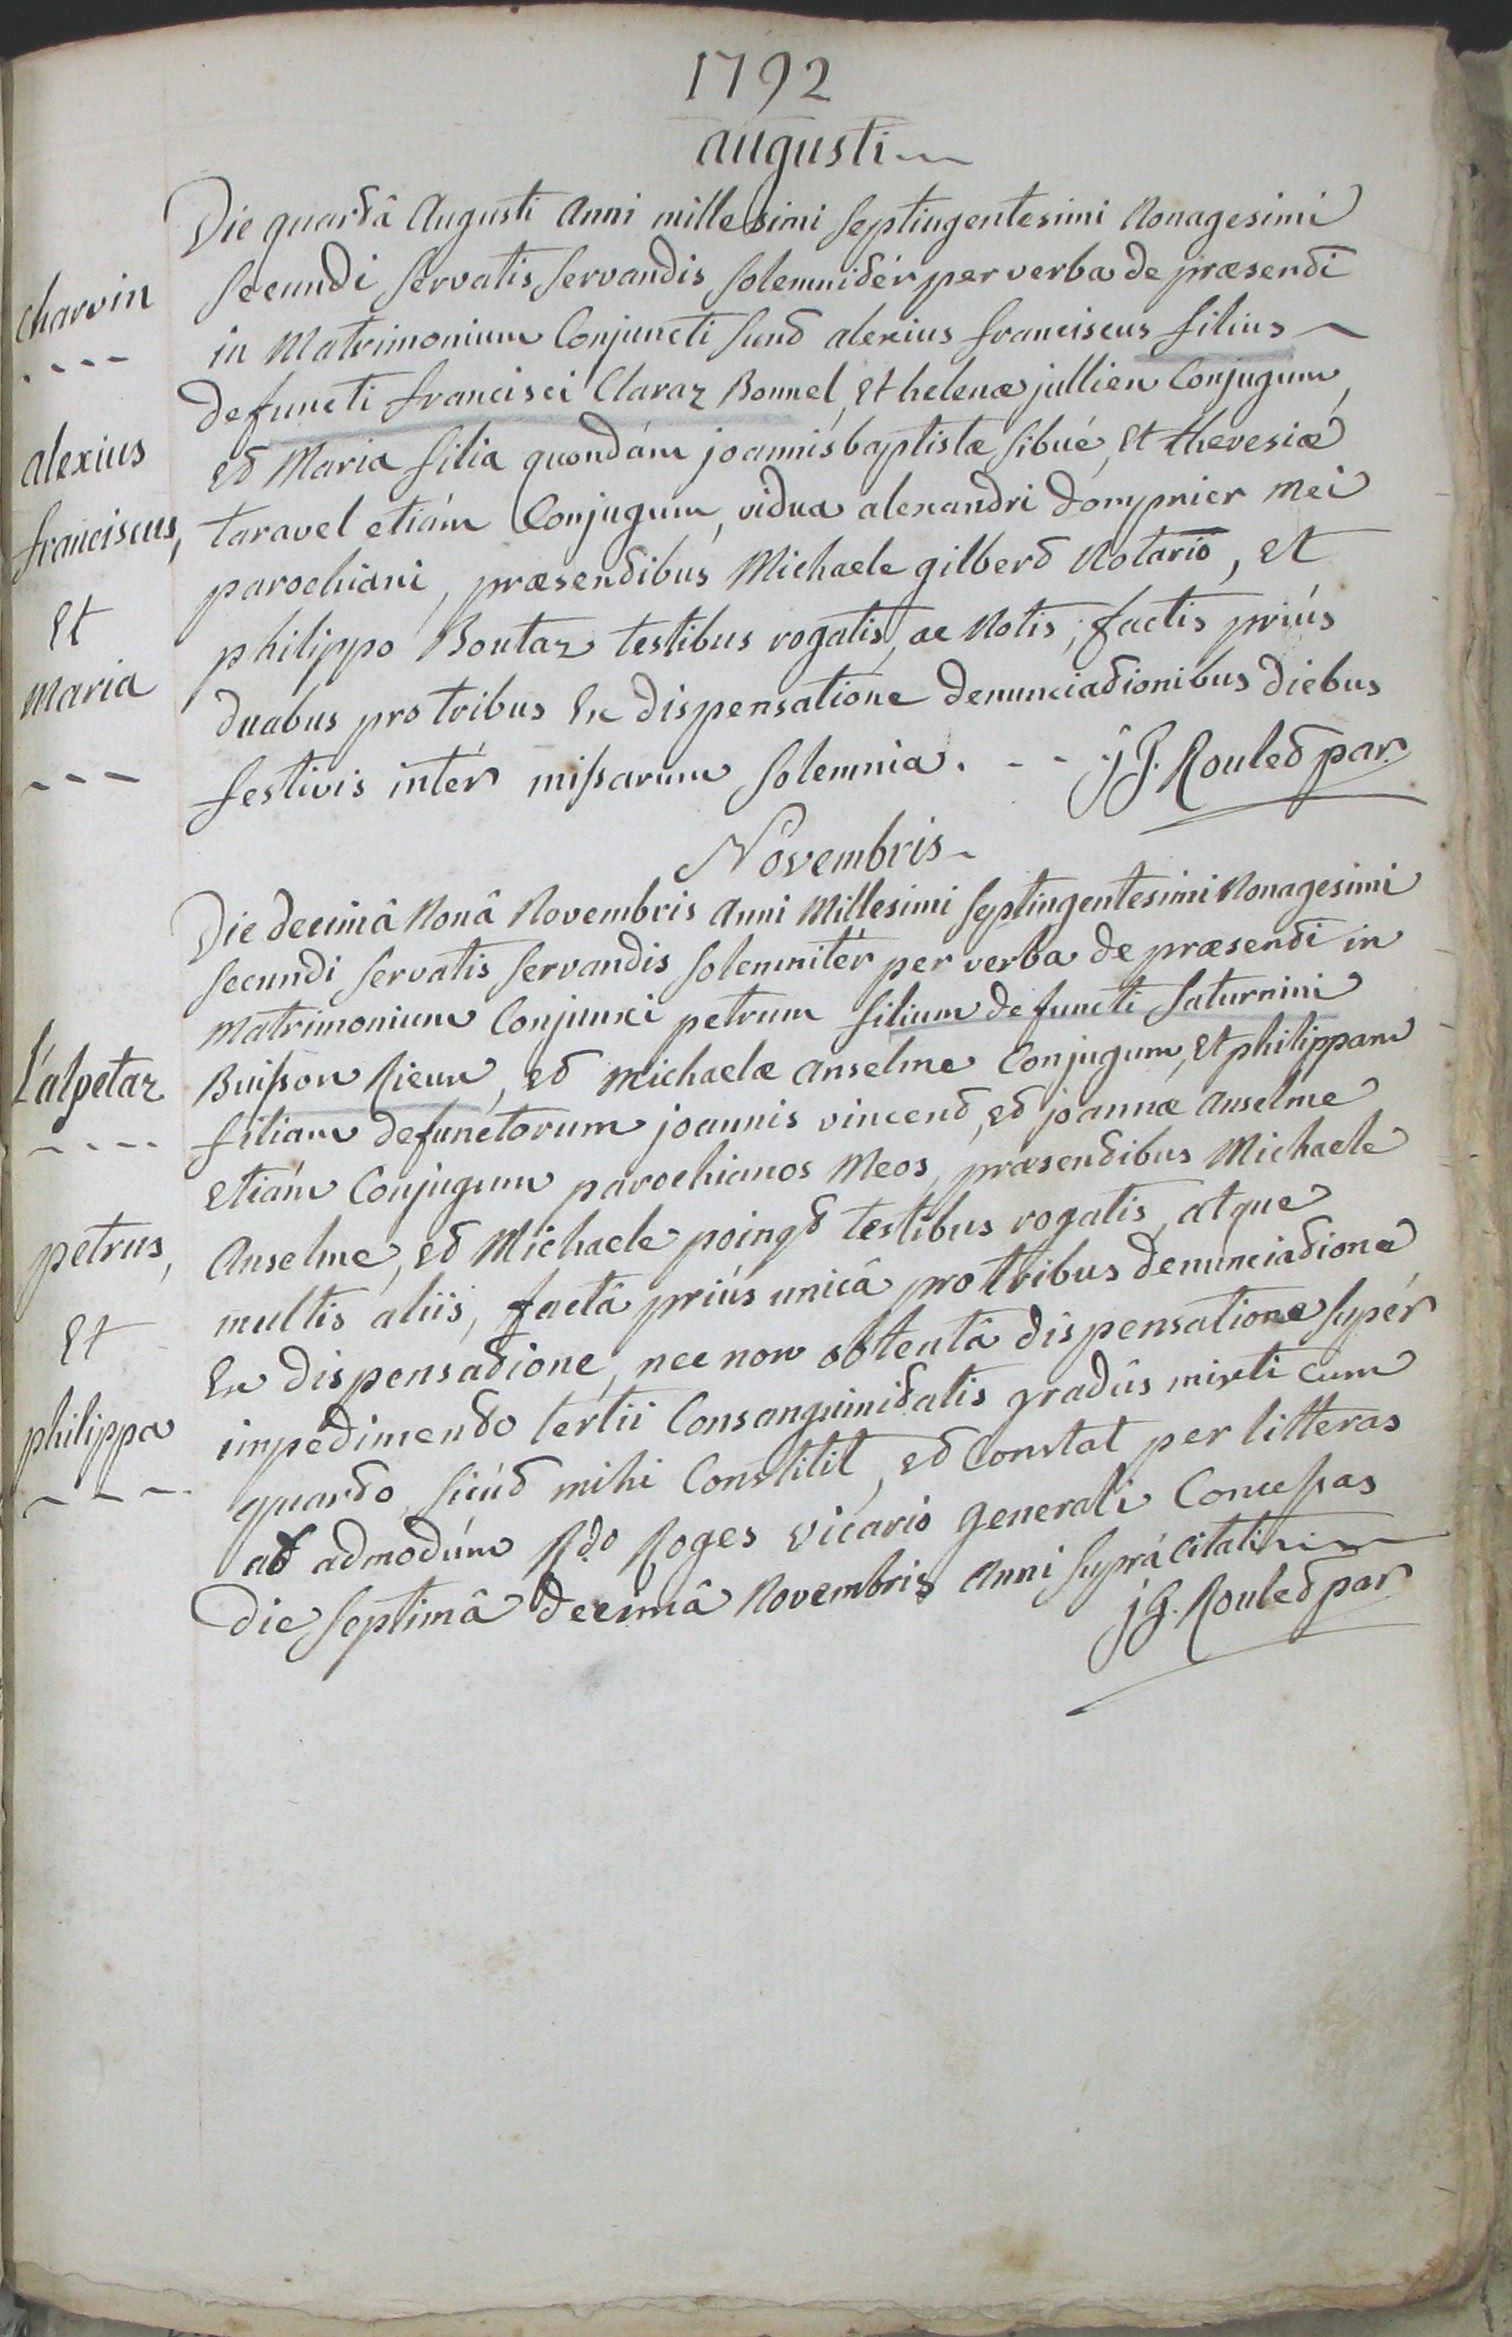 1792
augusti
Die quartâ Augusti Anni millesimi septingentesimi Nonagesimi
secundi servatis servandis solemnitér per verba de præsenti
charvin
in Matrimonium Conjuncti sunt alexius franciscus filius
defuncti francisci Claraz Bonnel, Et helenæ jullien Conjugum,
alexius
et Maria filia quondám joannis baptistæ sibué, Et theresiæ
franciscus,
taravel etiám Conjugum, vidua alexandri dompnier Mei
parochiani, præsentibus Michaele gilbert Notario, Et
Et
philippo Boutaz testibus rogatis, ac Notis, factis priús
maria
duabus pro tribus Ex dispensatione denunciationibus diebus
festivis intér missarum solemnia. - - - j J. Roulet par.
Novembris
Die decimâ Nonâ Novembris Anni Millesimi septingentesimi Nonagesimi
secundi servatis servandis solemnitér per verba de præsenti in
Matrimonium Conjunxi petrum filium defuncti saturnini
L'alpetaz
Buisson Rieux, et Michaelæ Anselme Conjugum, Et philippam
filiam defunctorum joannis vincent, et joannæ Anselme
etiám Conjugum parochianos Meos, præsentibus Michaele
petrus,
Anselme, et Michaele poingt testibus rogatis, atque
multis aliis, factâ priús unicâ pro tribus denunciatione
Et
Ex dispensatione, nec non obtentâ dispensatione supér
philippa
impedimento tertii Consanguinitatis gradûs mixti cum
quarto, sicút mihi Constitit, et Constat per litteras
ab admodúm Rdo Roges vicario generali Concessas
Die septimâ decimâ Novembris Anni suprácitati
j J. Roulet par